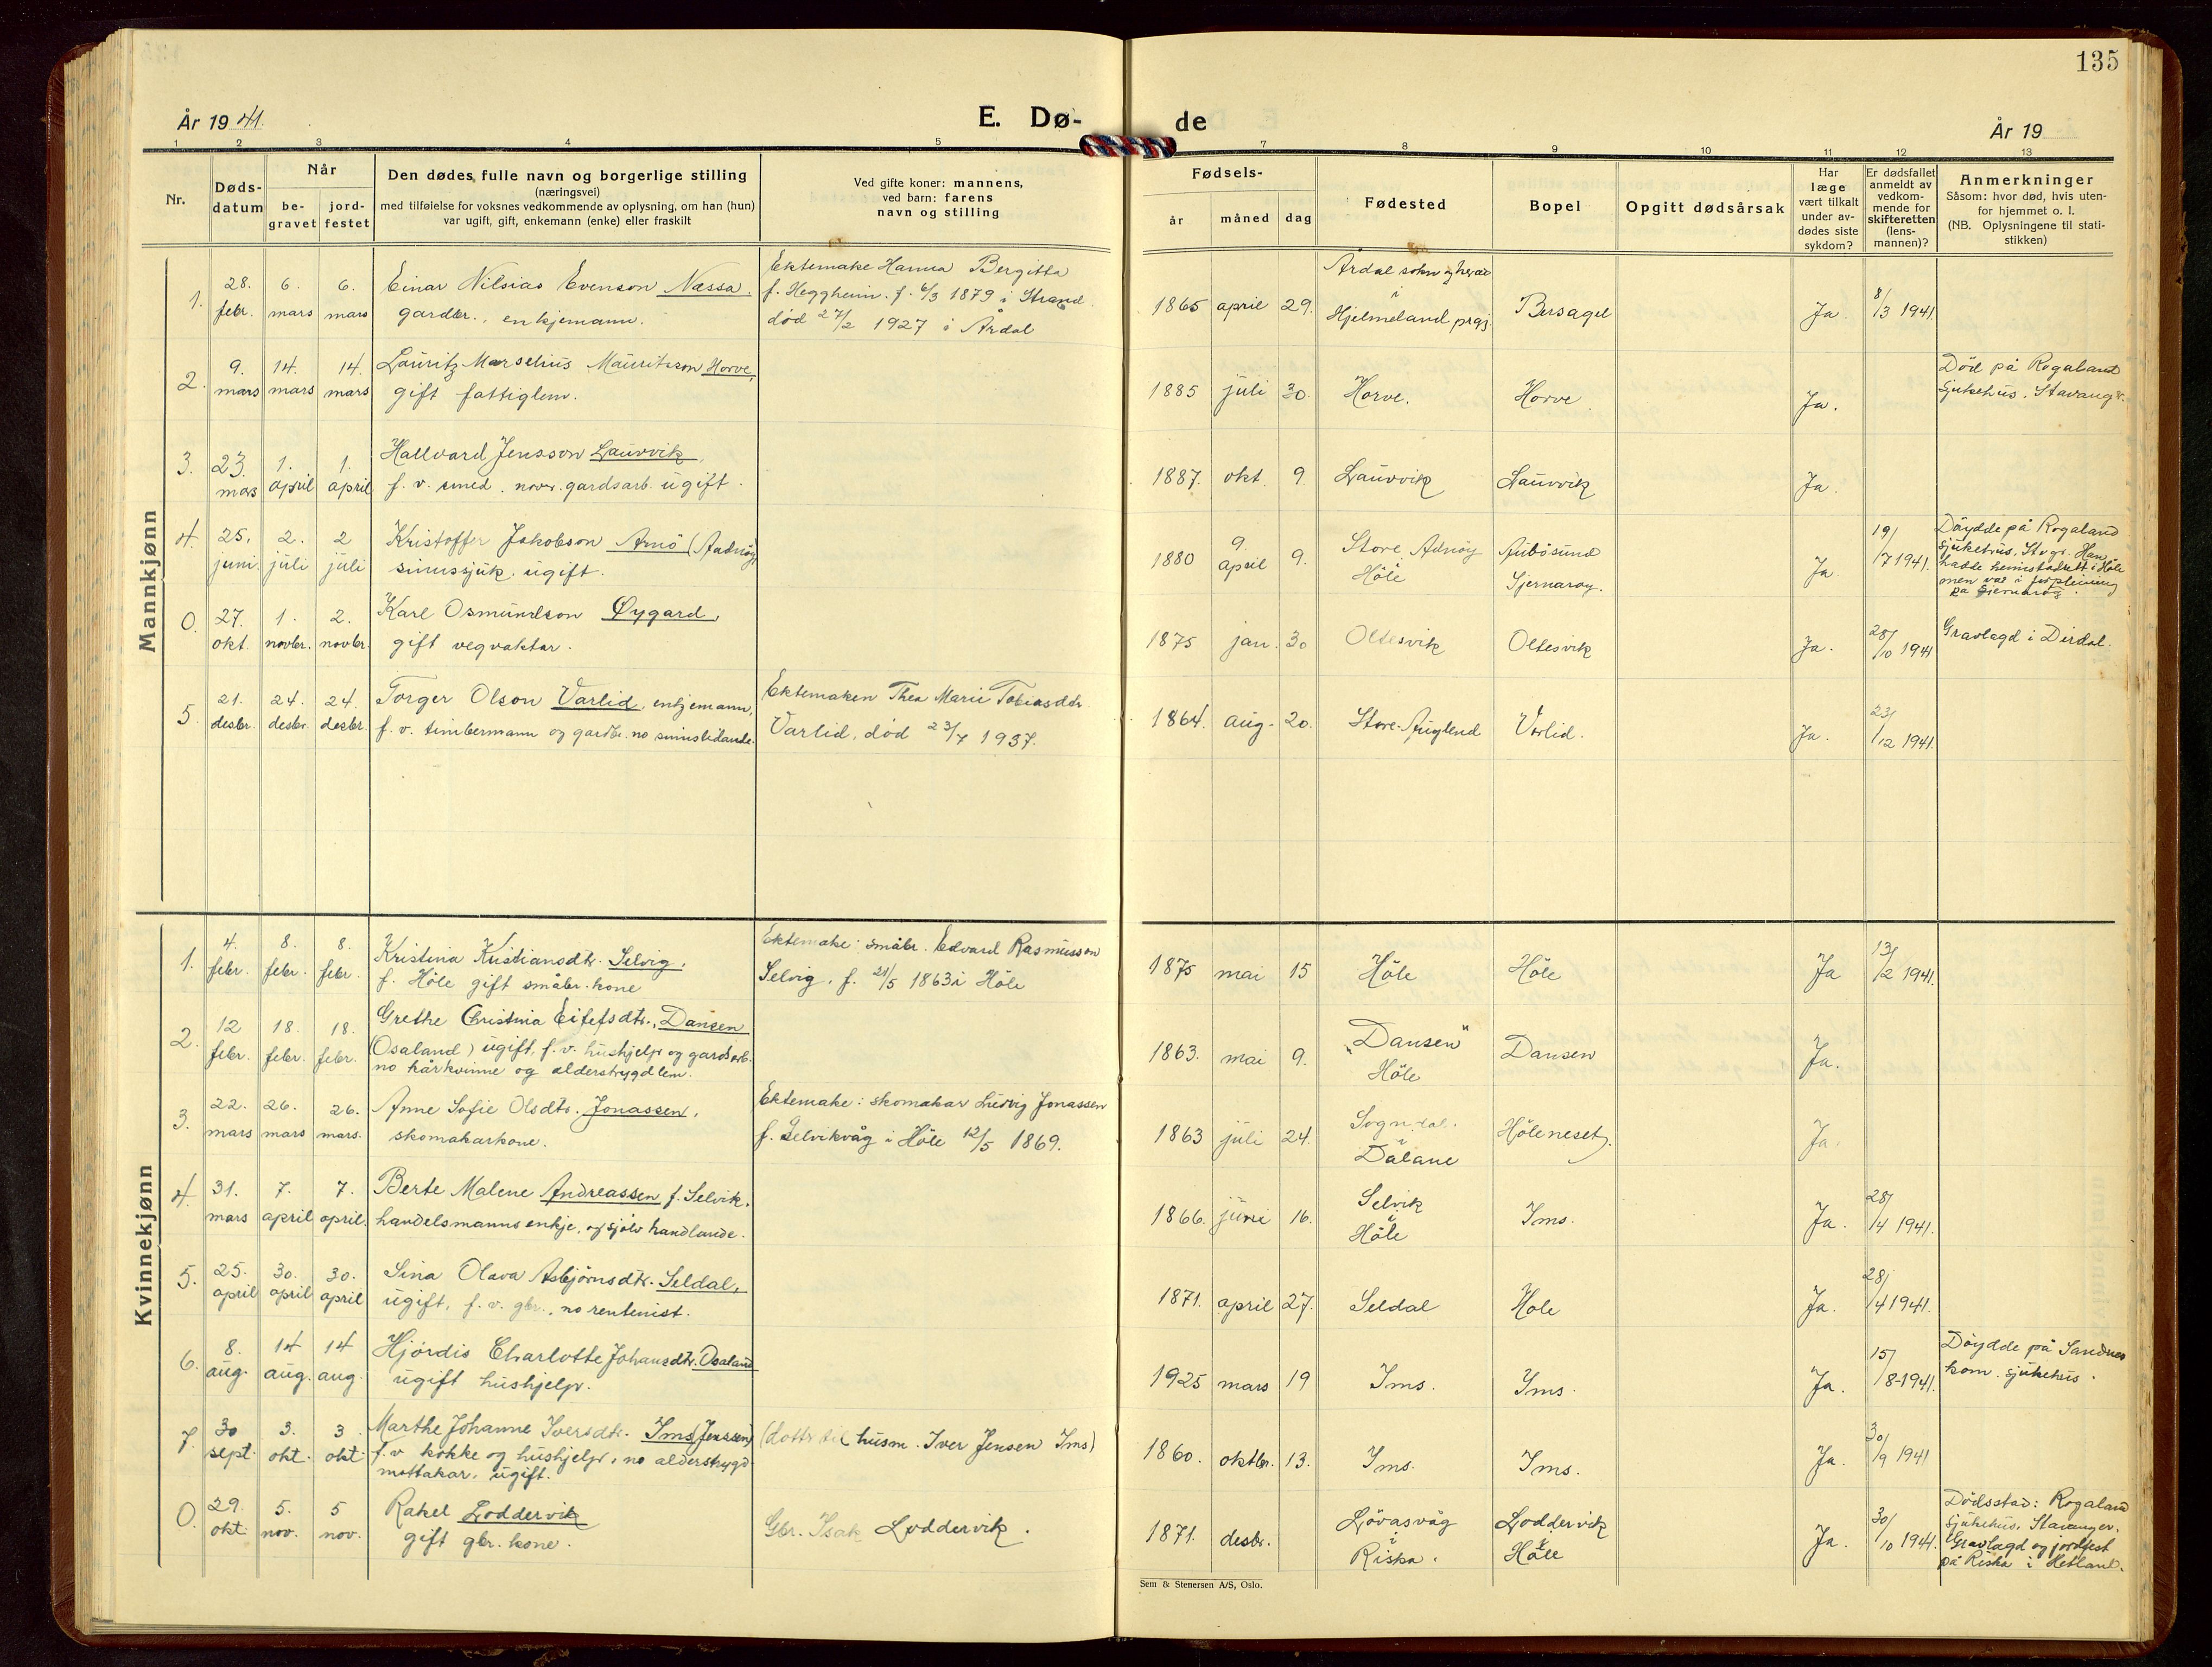 135
År 1941.
E. Dø-
de
År 19
1 2 3 4 5 7 8 9 10 11 12 13
Nr.
Døds-
datum
Når
be-
gravet
jord-
festet
Den dødes fulle navn og borgerlige stilling
(næringsvei)
med tilføielse for voksnes vedkommende av oplysning, om han (hun)
var ugift, gift, enkemann (enke) eller fraskilt
Ved gifte koner: mannens,
ved barn: farens
navn og stilling
Fødsels-
år måned dag
Fødested
Bopel
Opgitt dødsårsak
Har
læge
vært tilkalt
under av-
dødes siste
sykdom?
Er dødsfallet
anmeldt av
vedkom-
mende for
skifteretten
(lens-
mannen)?
Anmerkninger
Såsom: hvor død, hvis uten-
for hjemmet o. l.
(NB. Oplysningene til stati-
stikken)
Mannkjønn
1.
28. febr.
6. mars
6. mars
Einar Nilsias Evenson Nessa.
gardbr., enkjemann.
Ektemake Hanna Bergitta
f. Heggheim. f. 6/3 1879 i Strand
død 27/2 1927 i Årdal
1865 april 29.
Årdal sokn og herad
i
Hjelmeland prgj.
Bersagel
Ja.
8/3 1941.
2.
9. mars
14. mars
14. mars
Lauritz Marselius Mauritsson Horve,
gift fattiglem.
1885 juli 30.
Horve.
Horve
Ja.
Död på Rogaland
Sjukehus. Stavanger.
3.
23. mars
1. april
1. april
Hallvard Jensson Lauvvik,
f. v. smed. nover. gardsarb. ugift.
1887. okt. 9.
Lauvvik
Lauvvik
Ja.
4.
25. juni
2. juli
2 juli
Kristoffer Jakobson Arnö (Adnøy)
sinnssjuk. ugift.
1880 9. april 9.
Store Adnøy
Höle
Aubösund
Sjernarøy.
Ja
19/7 1941.
Döydde på Rogaland
Sjukehus, Stvgr. Han
hadde heimstadrett i Höle
men var i forpleining
på Sjernarøy.
0.
27. okt.
1. novbr.
2. novbr.
Karl Osmundson Øygard,
gift vegvaktar.
1875 jan. 30
Oltesvik
Oltesvik
Ja.
28/10 1941
Gravlagd i Dirdal.
5.
21. desbr.
24. desbr.
24. desbr.
Torger Olson Varlid, enkjemann,
f. v. timbermann og gardbr. no sinnslidande.
Ektemaken Thea Marie Tobiasdtr
Varlid, død 23/7 1937.
1864. aug. 20.
Store-Auglend
Varlid.
Ja.
23/12 1941.
Kvinnekjønn
1.
4. febr.
8. febr.
8. febr.
Kristina Kristiansdtr. Selvig,
f. Höle gift småbr. kone
Ektemake: småbr. Edvard Rasmusson
Selvig, f. 21/5 1863 i Höle
1875 mai 15
Höle
Höle
Ja
13/2 1941.
2.
12 febr.
18. febr.
18. febr.
Grethe Christina Eilefsdtr., Dansen
(Osaland) ugift, f. v. hushjelp og gardsarb.
no kårkvinne og alderstrygdlem.
1863. mai 9.
"Dansen"
Höle
Dansen
Ja.
3.
22. mars
26. mars
26. mars.
Anne Sofie Olsdtr. Jonassen,
skomakarkone.
Ektemake: skomakar Ludvig Jonassen
f. Selvikvåg i Höle 12/5 1869.
1863 juli 24.
Sogndal.
i
Dalane
Höleneset.
Ja.
4.
31. mars
7. april
7. april.
Berte Malene Andreassen f. Selvik.
handelsmanns enkje, og sjølv handlande.
1866. juni 16.
Selvik
i
Höle
Ims.
Ja.
28/4 1941.
5.
25. april
30. april
30. april
Sina Olava Asbjörnsdtr. Seldal,
ugift, f. v. gbr., no rentenist.
1871. april 27.
Seldal
Höle
Ja.
28/4 1941.
6.
8. aug.
14 aug.
14 aug.
Hjördis Charlotte Johansdtr. Osaland
ugift hushjelp.
1925 mars 19
Ims.
Ims.
Ja.
15/8-1941.
Döydde på Sandnes
kom. sjukehus.
7.
30 sept.
3. okt.
3 okt
Marthe Johanne Iversdtr. Ims (Jenssen)
f. v kokke og hushjelp, no alderstrygd
mottakar, ugift.
(dottr til husm. Iver Jensen Ims)
1860. oktbr. 13.
Ims.
Ims.
Ja.
30/9 1941
0.
29. okt.
5. nov.
5 nov.
Rakel Loddervik
gift gbr. kone.
Gbr. Isak Loddervik.
1871. desbr.
Lövasvåg
i
Riska.
Loddervik
i
Höle
Ja.
30/10 1941.
Dödsstad: Rogaland
sjukehus, Stavanger.
Gravlagd og jordfest
på Riska i Hetland.
Sem & Stenersen A/S, Oslo.